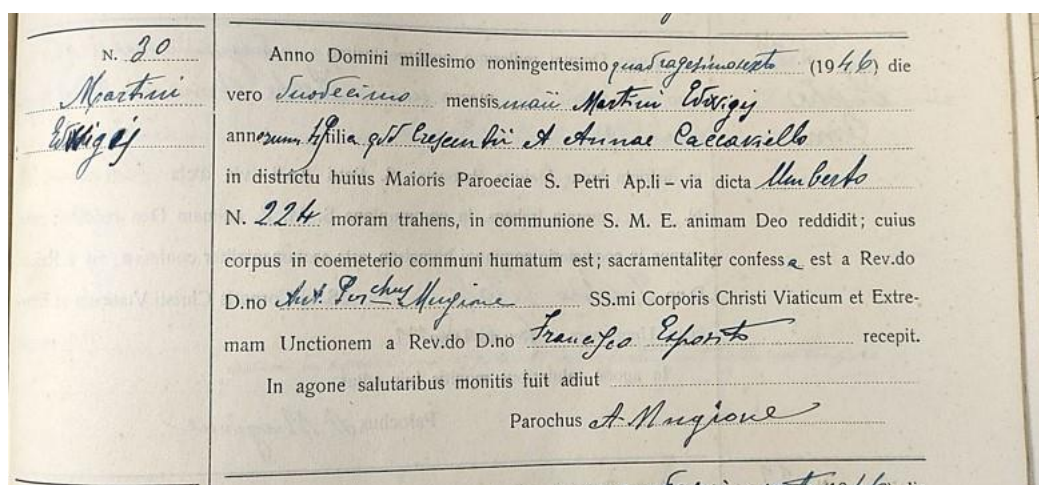 N. 30
Martini
Edwigis
Anno Domini millesimo noningentesimo quadragesimosexto (1946) die
vero duodecimo mensis maii Martini Edwigis
annorum filia qdd Crescentii et Annae Caccaviello
in districtu huius Maioris Paroeciae S. Petri Ap.li – via dicta Umberto
N. 224 moram trahens, in communione S. M. E. animam Deo reddidit; cuius
corpus in coemeterio communi humatum est; sacramentaliter confessa est a Rev.do
D.no Ant. Mugione SS.mi Corporis Christi Viaticum et Extre-
mam Unctionem a Rev.do D.no Francesco Esposito recepit.
In agone salutaribus monitis fuit adiut
Parochus A. Mugione